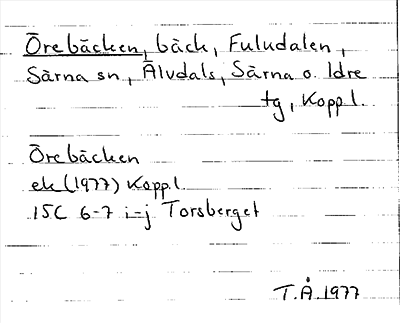 Örebäcken, bäck, Fuludalen,
Särna sn, Älvdals, Särna o. Idre
tg, Koppl.
Örebäcken
ek (1977) Koppl.
15C 6-7 i-j Torsberget
T.Å. 1977